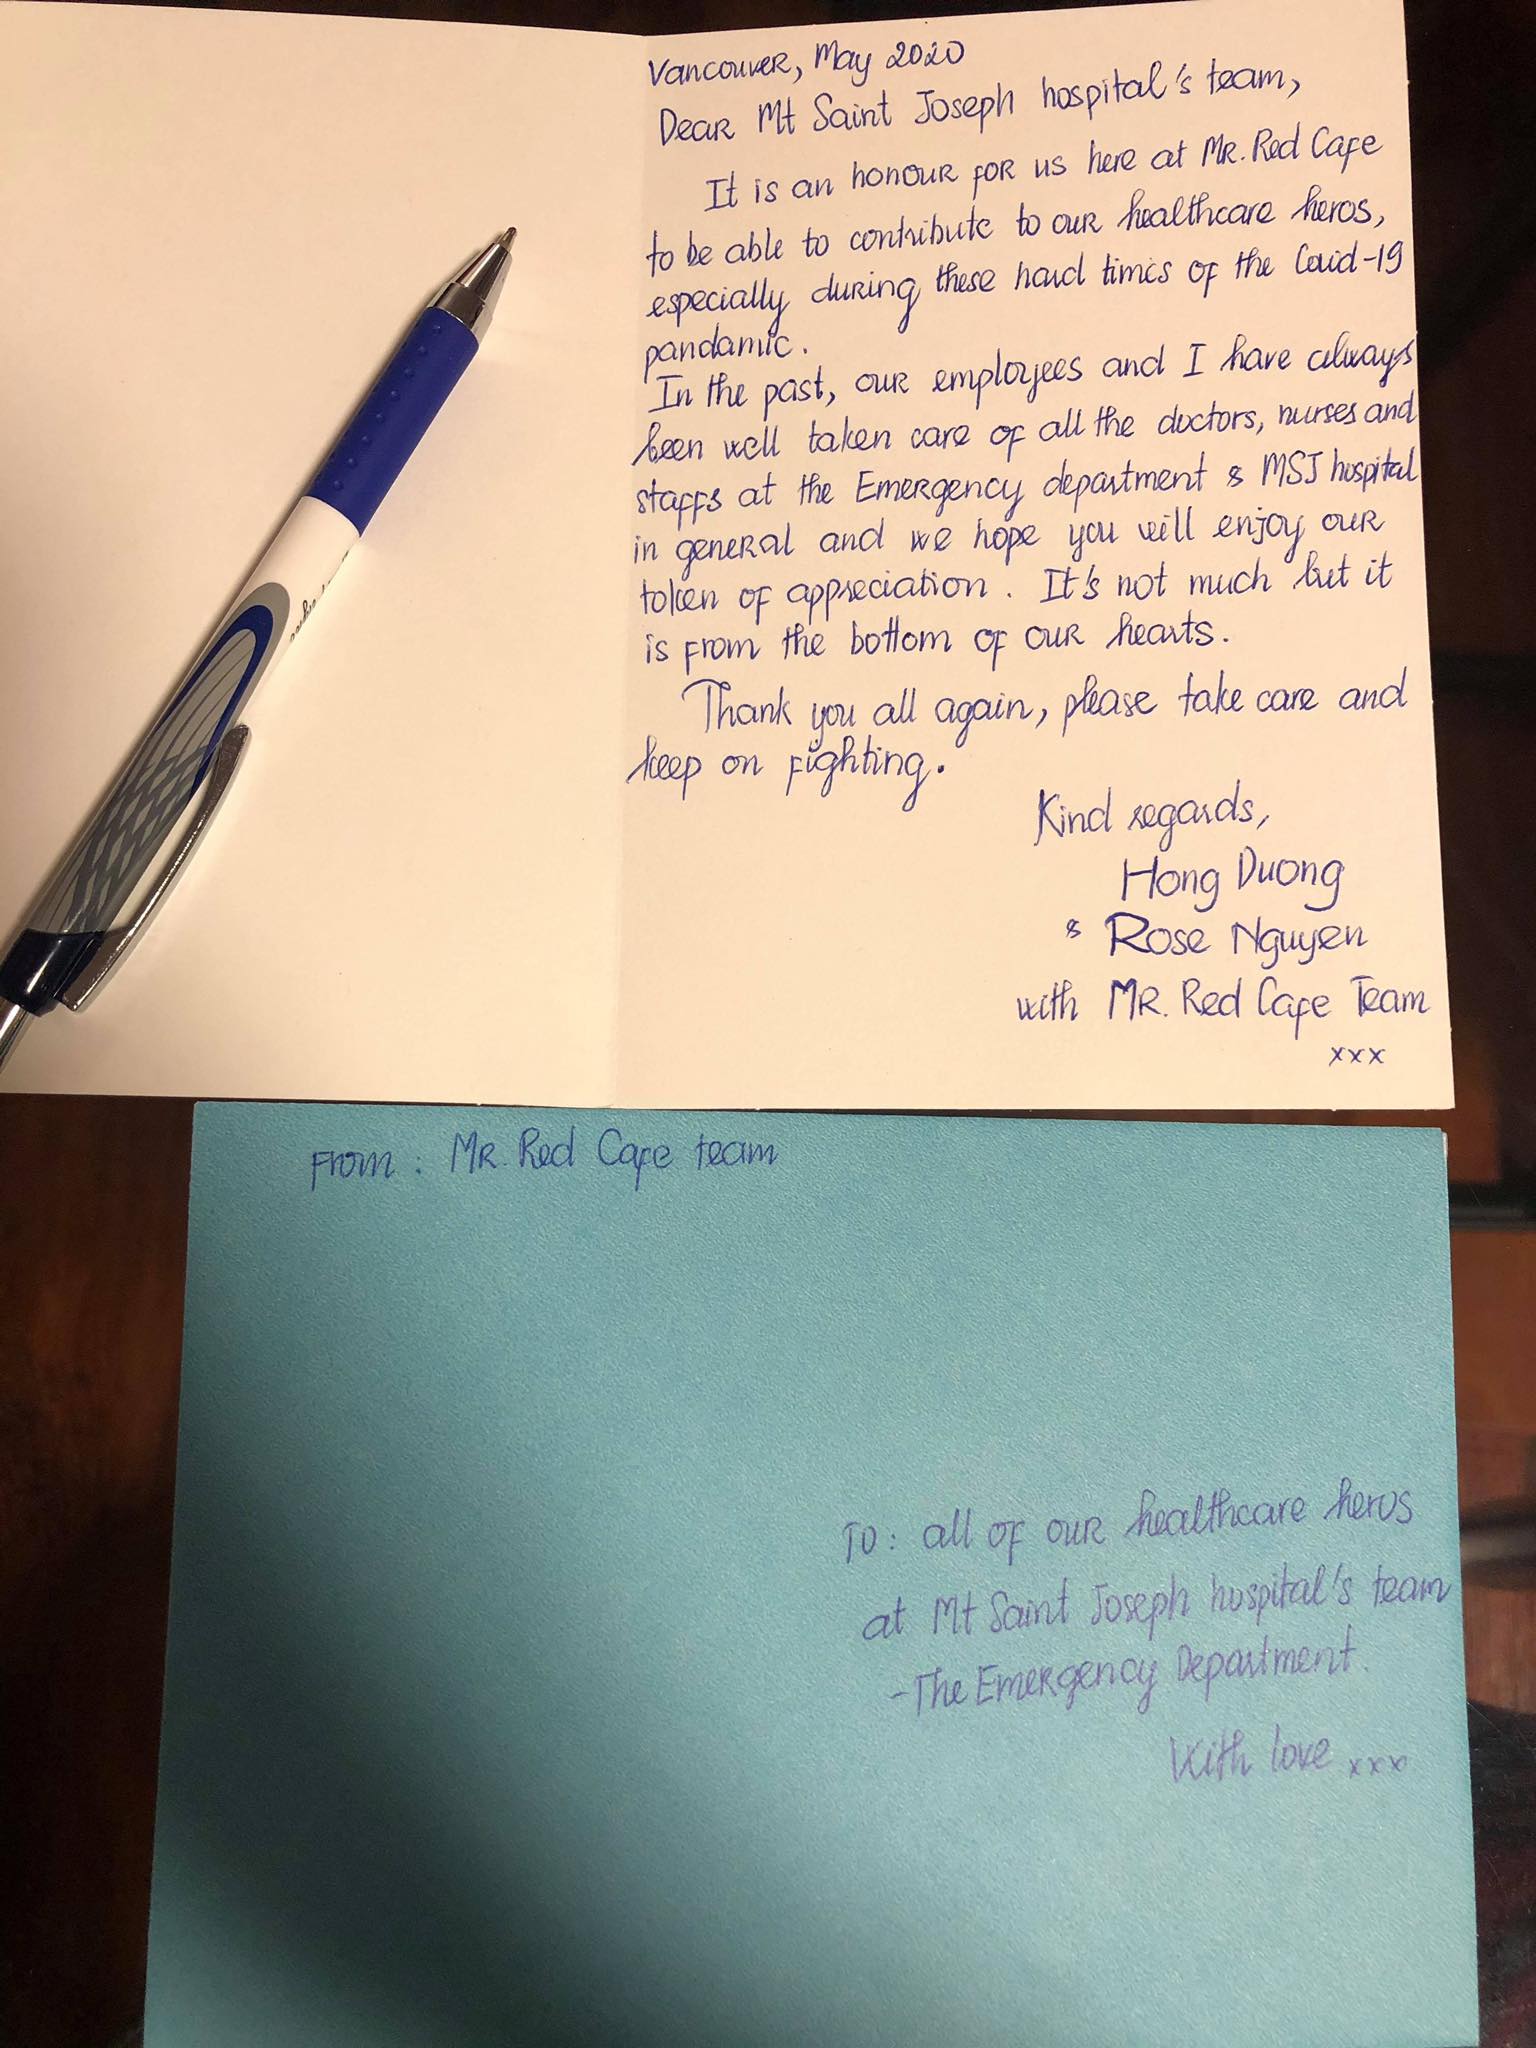 Vancouver, May 2020
Dear Mt Saint Joseph hospital's team,
It is an honour for us here at Mr. Red Cafe
to be able to contribute to our healthcare heros,
especially during these hard times of the Covid-19
pandamic.
In the past, our employees and I have always
been well taken care of all the doctors, nurses and
staffs at the Emergency department & MSJ hospital
in general and we hope you will enjoy our
token of appreciation. It's not much but it
is from the bottom of our hearts.
Thank you all again, please take care and
keep on fighting.
Kind regards,
Hong Duong
& Rose Nguyen
with MR. Red Cafe Team
xxx
From: MR. Red Cafe team
To: all of our healthcare heros
at Mt Saint Joseph hospital's team
- The Emergency Department.
With love xxx